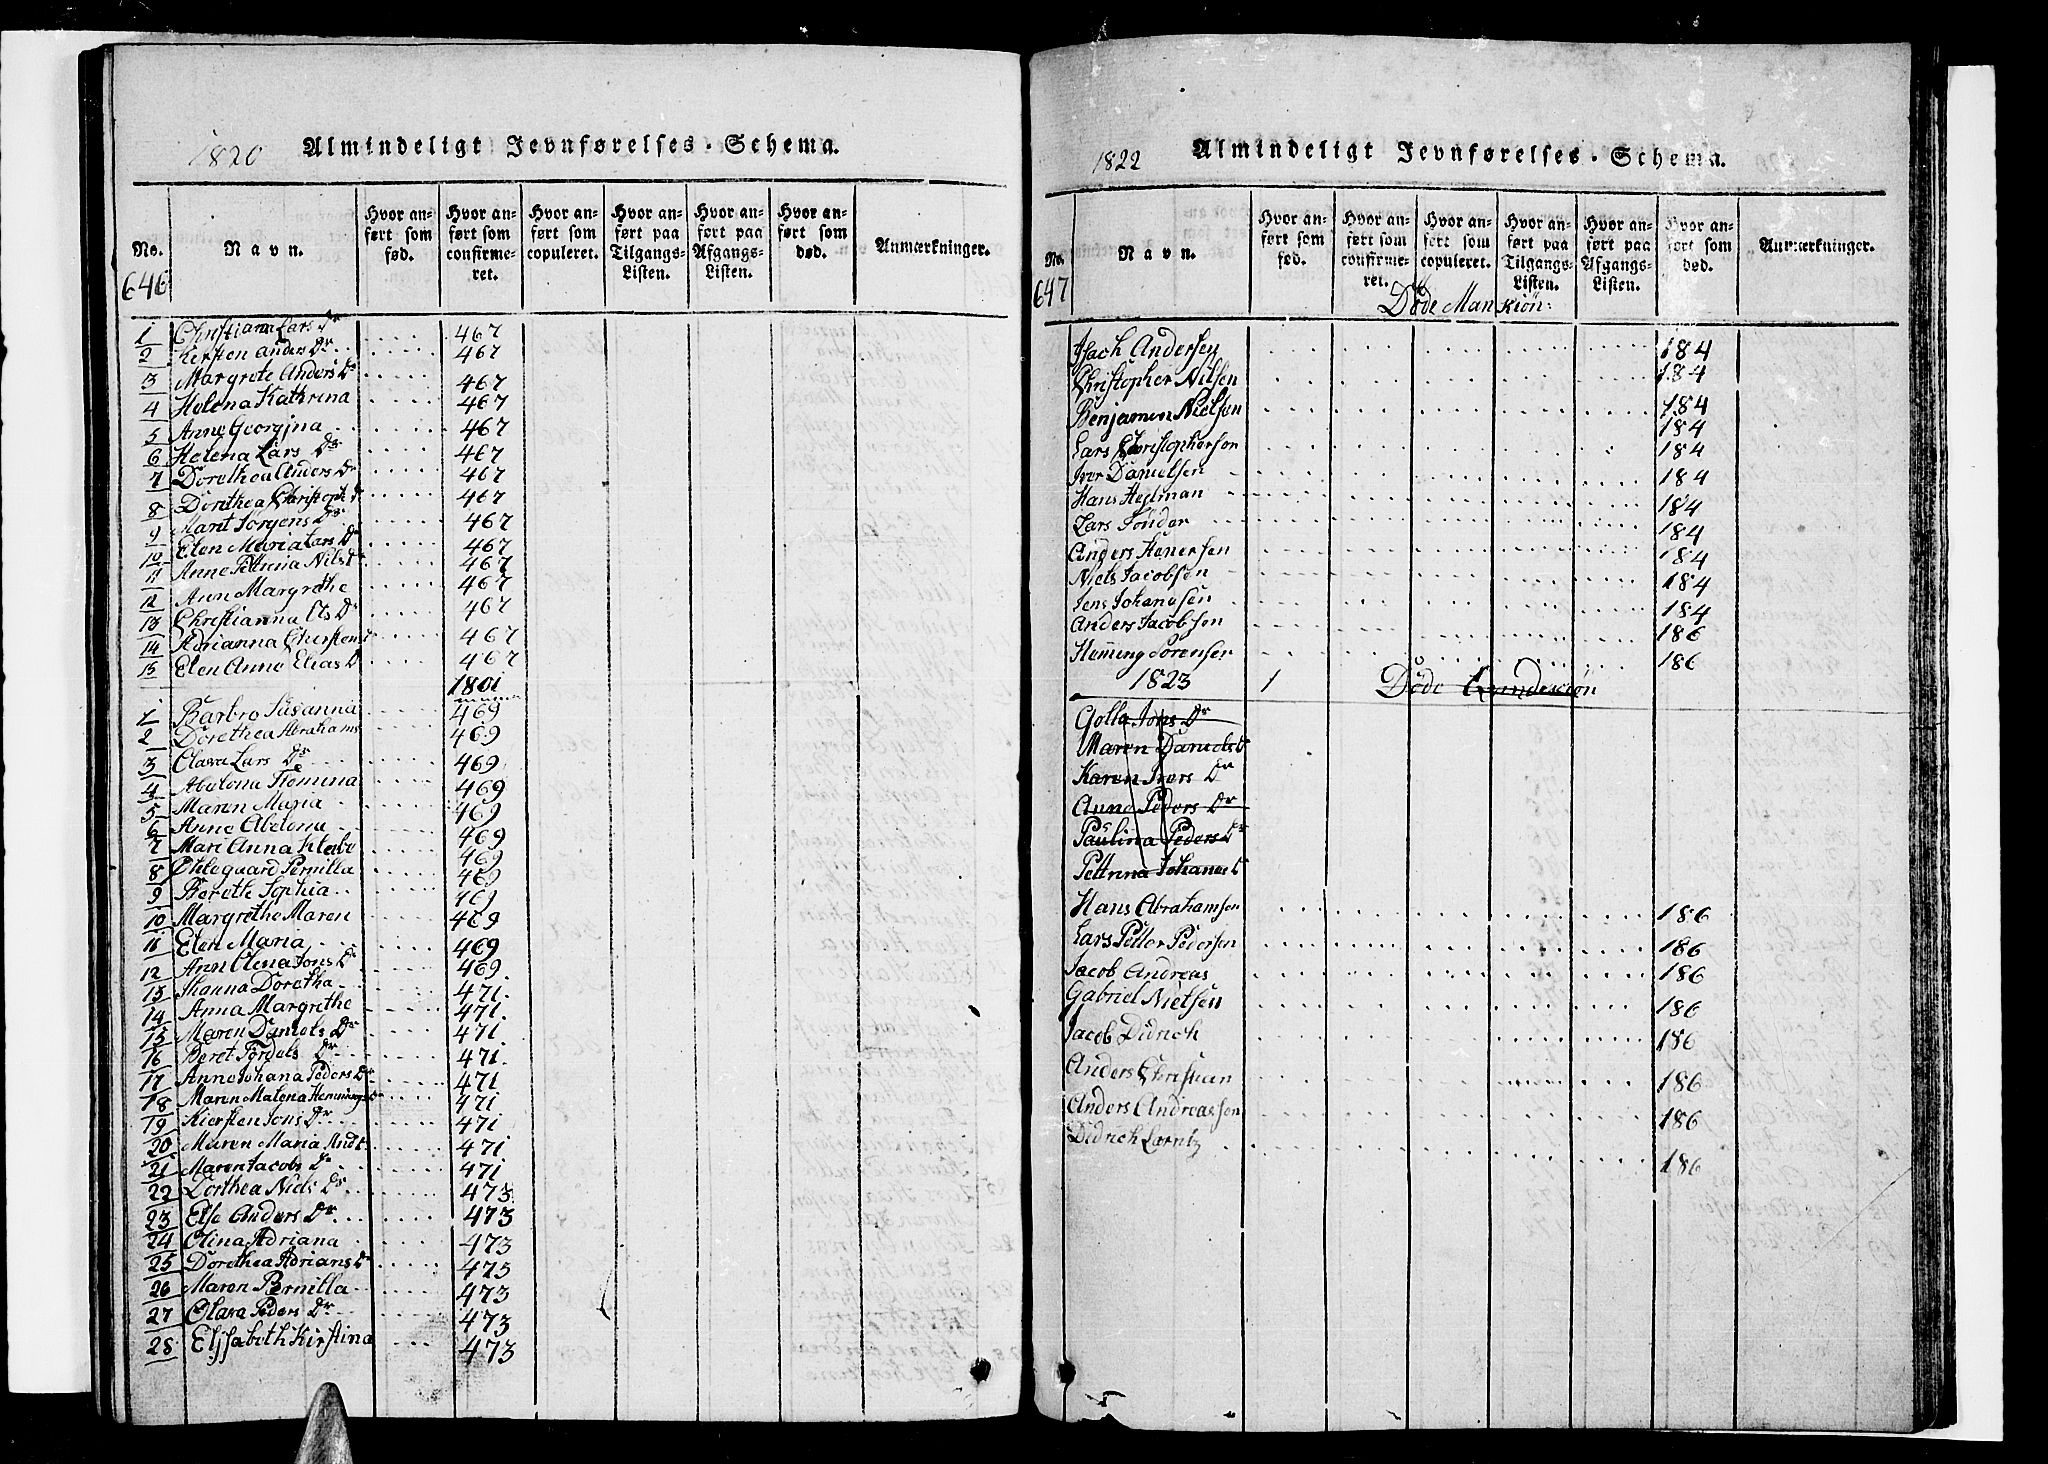 1820 Almindeligt Jevnførelses-Schema.
No. Navn. Hvor anført som fød. Hvor anført som confirmeret. Hvor anført som copuleret. Hvor anført paa Tilgangs-Listen. Hvor anført paa Afgangs-Listen. Hvor anført som død. Anmærkninger.
646
1 Christiana Lars Dr 467
2 Kersten Anders Dr 467
3 Margrete Anders Dr 467
4 Helena Kathrina 467
5 Anne Georgina 467
6 Helena Lars Dr 467
7 Dorethea Anders Dr 467
8 Dorethea Christoph D 467
9 Marit Jørgens Dr 467
10 Elen Maria Lars Dr 467
11 Anne Pettrina Nils Dr 467
12 Ann Margrethe 467
13 Christianna Ols Dr 467
14 Adrianna 467
15 Elen Anne Elias D 467
1801
1 Barbro Susanna 469
2 Dorethea Abrahams 469
3 Clara Lars Dr 469
4 Abelona Flemina 469
5 Maren Maria 469
6 Anne Abelona 469
7 Mari Anna Klebo 469
8 Øllegaard Pernilla 469
9 Berethe Sophia 469
10 Margrethe Maren 469
11 Elen Maria 469
12 Ann Olena Jons Dr 469
13 Jhanna Dorotha 471
14 Anna Margrethe 471
15 Maren Daniels Dr 471
16 Beret Tordels Dr 471
17 Anne Johana Peders Dr 471
18 Maren Malena Hemmings Dr 471
19 Kiersten Jons Dr 471
20 Maren Maria And 471
21 Maren Jacobs Dr 471
22 Dorthea Niels Dr 473
23 Else Anders Dr 473
24 Olina Adriana 473
25 Dorothea Adrians Dr 475
26 Maren Pernilla 473
27 Clara Peders Dr 473
28 Elisabeth Kirstina 473
1822 Almindeligt Jevnførelses-Schema.
No. Navn. Hvor anført som fød. Hvor anført som confirmeret. Hvor anført som copuleret. Hvor anført paa Tilgangs-Listen. Hvor anført paa Afgangs-Listen. Hvor anført som død. Anmærkninger.
647 Døde Mankiøn:
Isach Andersen 184
Christopher Nilsen 184
Benjamin Nielsen 184
Lars Christophersen 184
Iver Danielsen 184
Hans Hejlman 184
Lars Tønder 184
Anders Henersen 184
Niels Jacobsen 184
Jens Johansen 184
Anders Jacobsen 184
Heming Sørensen 186
1823 1 Døde Qvindekiøn 186
Golla Jons Dr
Maren Daniels D
Karen Ivers Dr
Anne Peders Dr
Paulina Peders Dr
Pettrina Johanes D
Hans Abrahamsen 186
Lars Petter Pedersen 186
Jacob Andreas 186
Gabriel Nielsen 186
Jacob Didrich 186
Anders Christian 186
Anders Andreassen 186
Didrich Lorntz 186